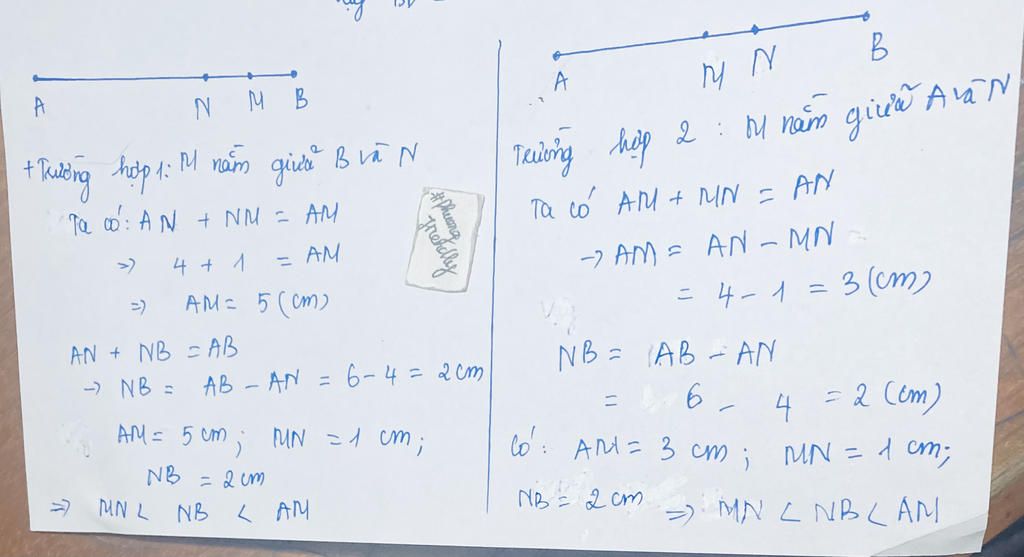 A N M B
+ Trường hợp 1: M nằm giữa B và N
Ta có: AN + NM = AM
=> 4 + 1 = AM
=> AM = 5 (cm)
AN + NB = AB
→ NB = AB - AN = 6 - 4 = 2 cm
AM = 5 cm; MN = 1 cm;
NB = 2 cm
=> MN < NB < AM
#phuong
Trendly
A M N B
Trường hợp 2: M nằm giữa A và N
Ta có AM + MN = AN
→ AM = AN - MN
= 4 - 1 = 3 (cm)
NB = AB - AN
= 6 - 4 = 2 (cm)
Có: AM = 3 cm; MN = 1 cm;
NB = 2 cm => MN < NB < AM